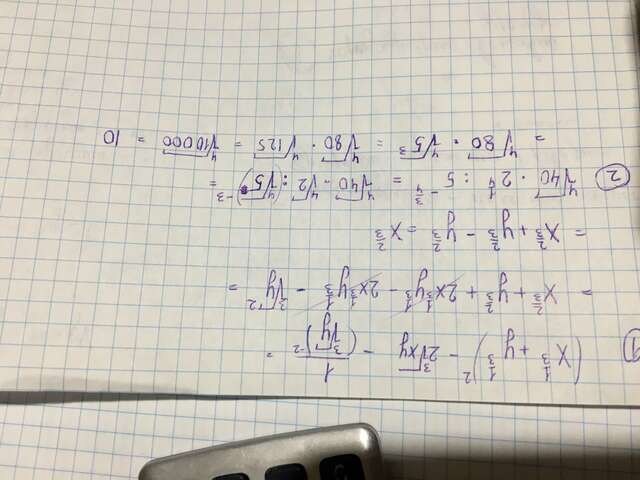 1) (x^{1/3} + y^{1/3})^2 - 2∛(xy) - 1/(∛y)^{-2} =
= x^{2/3} + y^{2/3} + 2x^{1/3}y^{1/3} - 2x^{1/3}y^{1/3} - ∛(y^2) =
= x^{2/3} + y^{2/3} - y^{2/3} = x^{2/3}
2) ∜40 · 2^{1/4} : 5^{-3/4} = ∜40 · ∜2 : (∜5)^{-3} =
= ∜80 · ∜5^3 = ∜80 · ∜125 = ∜10000 = 10